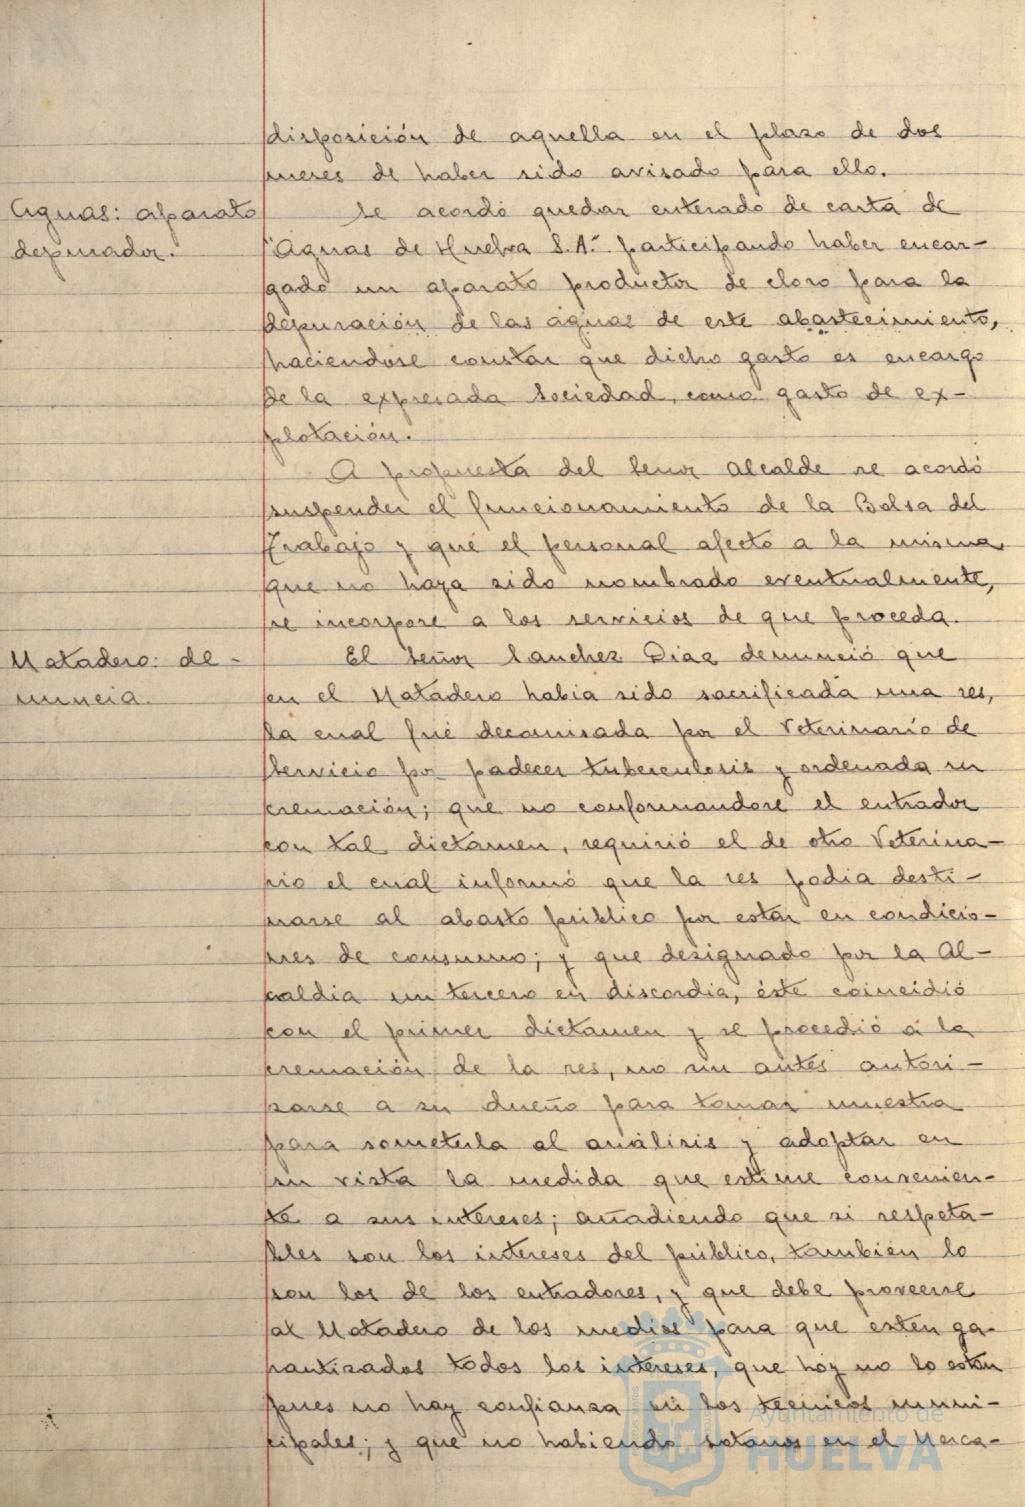 disposición de aquella en el plazo de dos
meses de haber sido avisado para ello.
Aguas: aparato
depurador.
Se acordó quedar enterado de carta de
"Aguas de Huelva S.A." participando haber encar-
gado un aparato productor de cloro para la
depuración de las aguas de este abastecimiento,
haciendose constar que dicho gasto es encargo
de la expresada Sociedad, como gasto de ex-
plotación.
A propuesta del Señor Alcalde se acordó
suspender el funcionamiento de la Bolsa del
Trabajo y qué el personal afecto a la misma
que no haya sido nombrado eventualmente,
se incorpore a los servicios de que proceda.
Matadero: de-
nuncia.
El Señor Sanchez Diaz denunció que
en el Matadero habia sido sacrificada una res,
la cual fué decomisada por el Veterinario de
Servicio por padecer tuberculosis y ordenada su
cremación; que no conformandose el entrador
con tal dictamen, requirió el de otro Veterina-
rio el cual informó que la res podia desti-
narse al abasto público por estar en condicio-
nes de consumo; y que designado por la Al-
caldia un tercero en discordia, éste coincidió
con el primer dictamen y se procedió a la
cremación de la res, no sin antes autori-
zarse a su dueño para tomar muestra
para someterla al análisis y adoptar en
su vista la medida que estime convenien-
te a sus intereses; añadiendo que si respeta-
bles son los intereses del público, también lo
son los de los entradores, y que debe proveerse
al Matadero de los medios para que estén ga-
rantizados todos los intereses, que hoy no lo están
pues no hay confianza en los tecnicos muni-
cipales; y que no habiendo sotanos en el Merca-
Ayuntamiento de
HUELVA